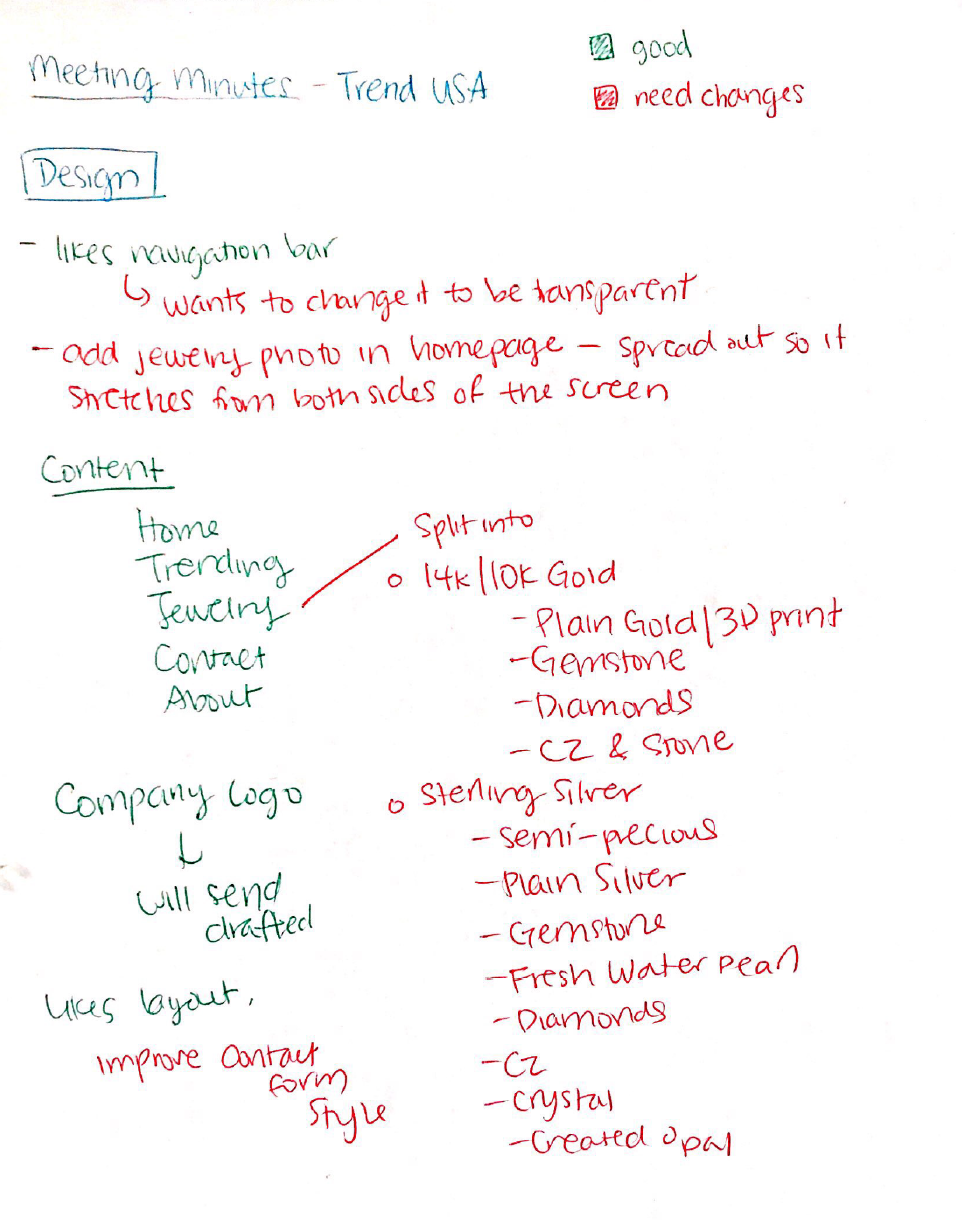 Meeting Minutes - Trend USA
good
need changes
Design
- likes navigation bar
↳ wants to change it to be tansparent
- add jewelry photo in homepage - spread out so it
stretches from both sides of the screen
Content
Home
Trending
Jewelry
Contact
About
Split into
o 14k/10k Gold
- Plain Gold/3D print
- Gemstone
- Diamonds
- CZ & Stone
o Sterling Silver
- Semi-precious
- Plain Silver
- Gemstone
- Fresh Water Pearl
- Diamonds
- CZ
- Crystal
- Created Opal
Company Logo
↓
will send
drafted
likes layout,
improve contact
form
style